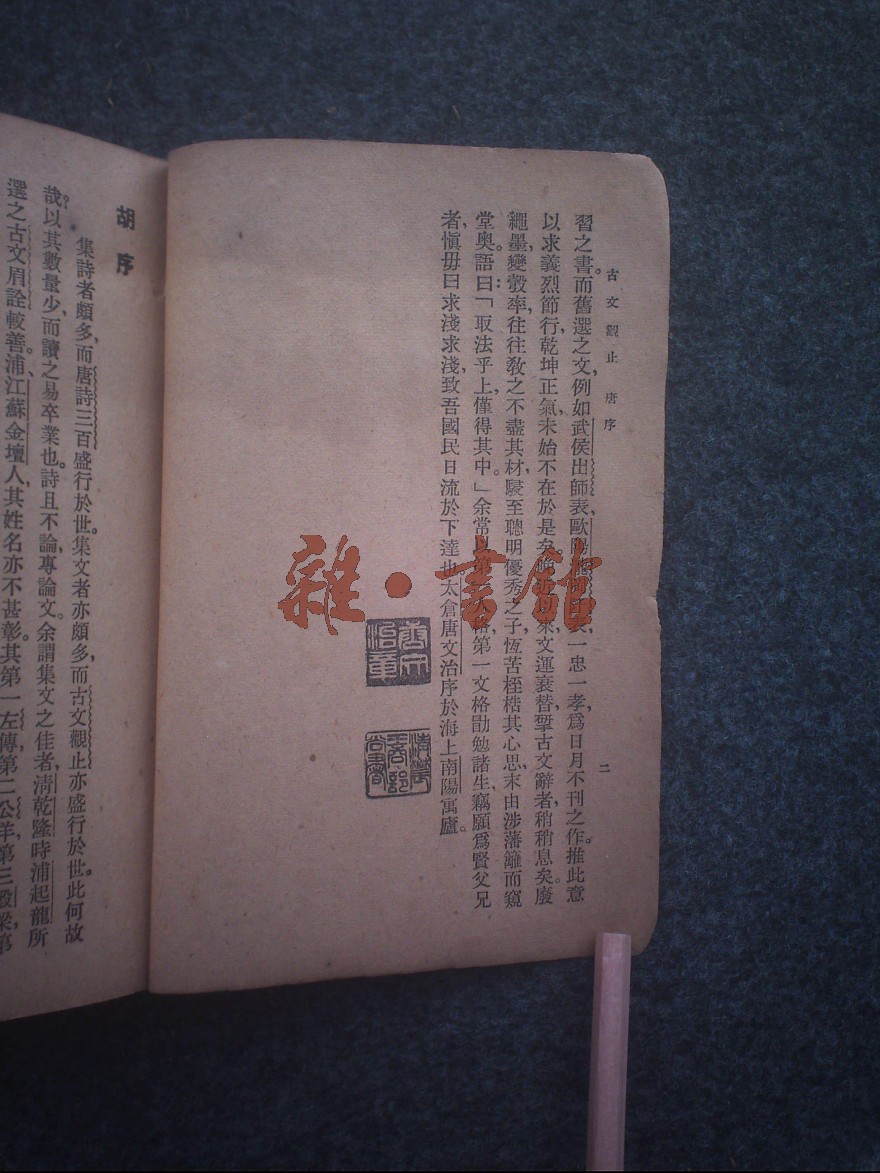 古文觀止 唐序
二
習之書。而舊選之文,例如武侯出師表,歐陽瀧岡阡表,一忠一孝,爲日月不刊之作。推此意
以求義烈節行,乾坤正氣,未始不在於是矣。晚近以來,文運衰替,掔古文辭者,稍稍息矣。廢
繩墨,變彀率,往往敎之不盡其材,駸至聰明優秀之子,恆苦桎梏其心思,末由涉藩籬而窺
堂奧。語曰:「取法乎上,僅得其中。」余常以第一人格,第一文格,勖勉諸生,竊願爲賢父兄
者,愼毋曰求淺求淺,致吾國民日流於下達也。太倉唐文治序於海上南陽寓廬。
唐文治章
雜·書館
胡序
集詩者頗多,而唐詩三百盛行於世。集文者亦頗多,而古文觀止亦盛行於世。此何故
哉?以其數量少,而讀之易卒業也。詩且不論,專論文。余謂集文之佳者,淸乾隆時浦起龍所
選之古文眉詮較善。浦,江蘇金壇人,其姓名亦不甚彰。其第一左傳,第二公羊,第三穀梁,第